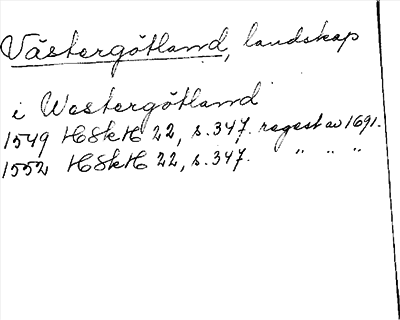 Västergötland, landskap
i Westergötland
1549 HSkH 22, s. 347. regest av 1691.
1552 HSkH 22, s. 347. " " "